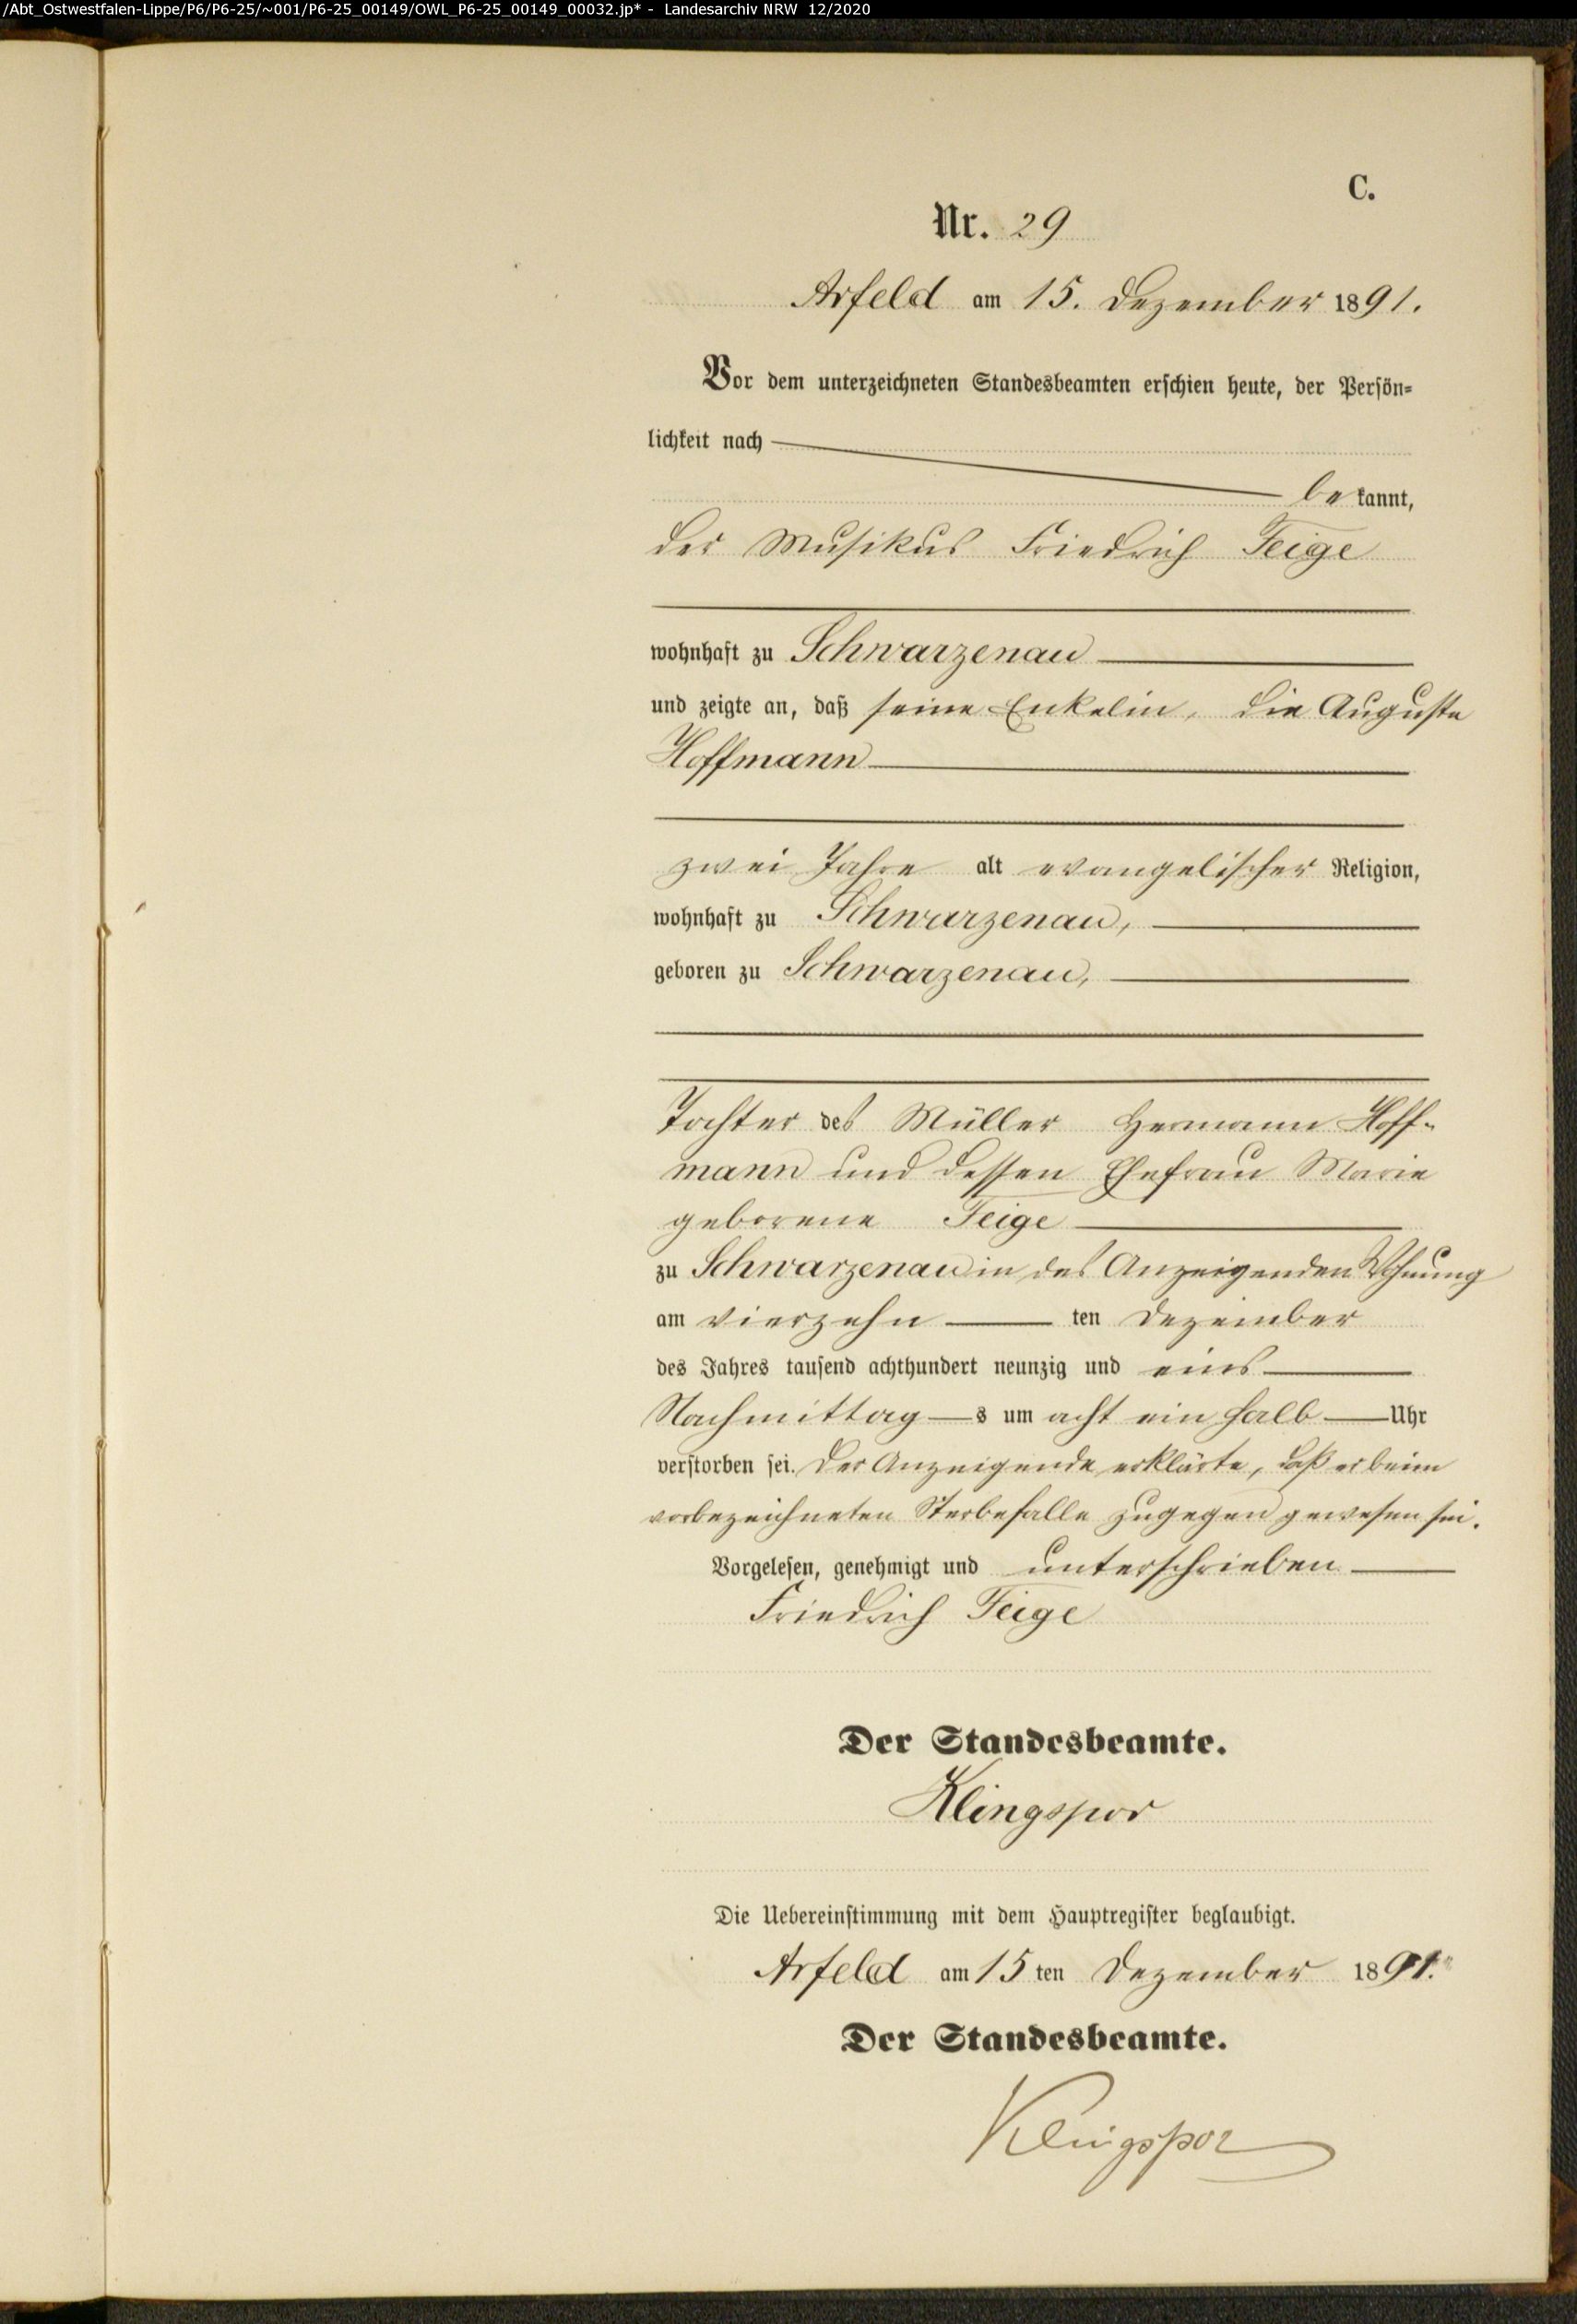 /Abt_Ostwestfalen-Lippe/P6/P6-25/~001/P6-25_00149/OWL_P6-25_00149_00032.jp* - Landesarchiv NRW 12/2020
C.
Nr. 29
Arfeld am 15. Dezember 1891.
Vor dem unterzeichneten Standesbeamten erschien heute, der Persön-
lichkeit nach
bekannt,
der Musikus Friedrich Feige
wohnhaft zu Schwarzenau
und zeigte an, daß seine Enkelin, die Auguste
Hoffmann
zwei Jahre alt evangelischer Religion,
wohnhaft zu Schwarzenau,
geboren zu Schwarzenau,
Tochter des Müller Hermann Hoff-
mann und dessen Ehefrau Marie
geborene Feige
zu Schwarzenau in des Anzeigenden Wohnung
am vierzehn ten Dezember
des Jahres tausend achthundert neunzig und eins
Nachmittag s um acht ein halb Uhr
verstorben sei. Der Anzeigende erklärte, daß er beim
vorbezeichneten Sterbefalle zugegen gewesen sei.
Vorgelesen, genehmigt und unterschrieben
Friedrich Feige
Der Standesbeamte.
Klingspor
Die Uebereinstimmung mit dem Hauptregister beglaubigt.
Arfeld am 15 ten Dezember 1891.
Der Standesbeamte.
Klingspor